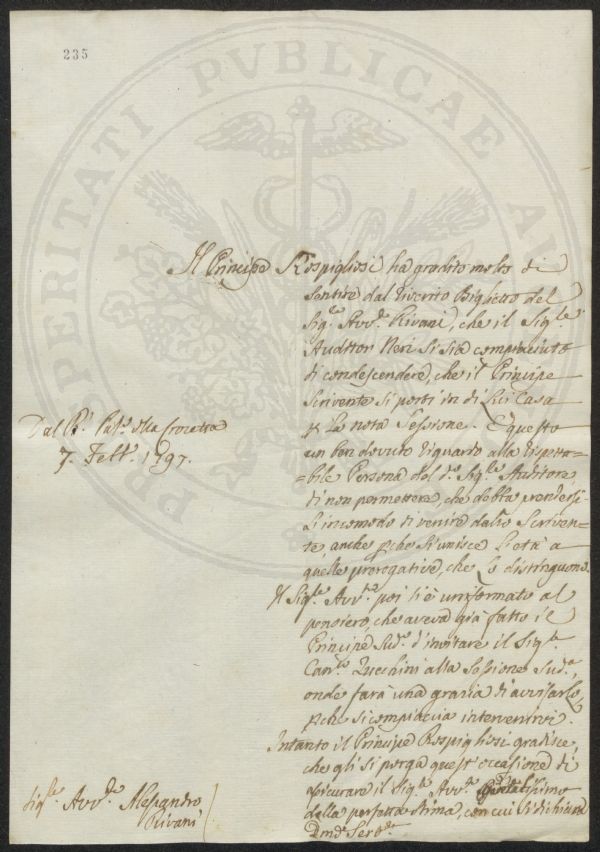 235
PROSPERITATI PVBLICAE AV
Il Principe Rospigliosi ha gradito molto di
sentire dal riverito Biglietto del
Sig.re Avv.o Rivani, che il Sig.re
Auditor Neri si sia compiaciuto
di condescendere, che il Principe
scrivente si porti in di lui Casa
p la nota Sessione. È questo
un ben dovuto riguardo alla rispetta=
=bile Persona del d.o Sig.re Auditore
di non permettere, che debba prendersi
l'incomodo di venire dallo Scriven=
te, anche pche si unisce l'età a
quelle prerogative, che lo distinguono.
Il Sig.re Avv.to poi si è uniformato al
pensiero, che aveva già fatto il
Principe Sud.o d'invitare il Sig.re
Can.co Zucchini alla Sessione Sud.a,
onde farà una grazia di avvisarlo,
pche si compiaccia intervenirvi.
Intanto il Principe Rospigliosi gradisce,
che gli si porga quest'occasione di
assicurare il Sig.re Avv.o
della perfetta stima, con cui si dichiara
Dal R. Pal.o della Crocetta
7. Feb. 1797.
Sig.re Avv.o Alessandro
Rivani